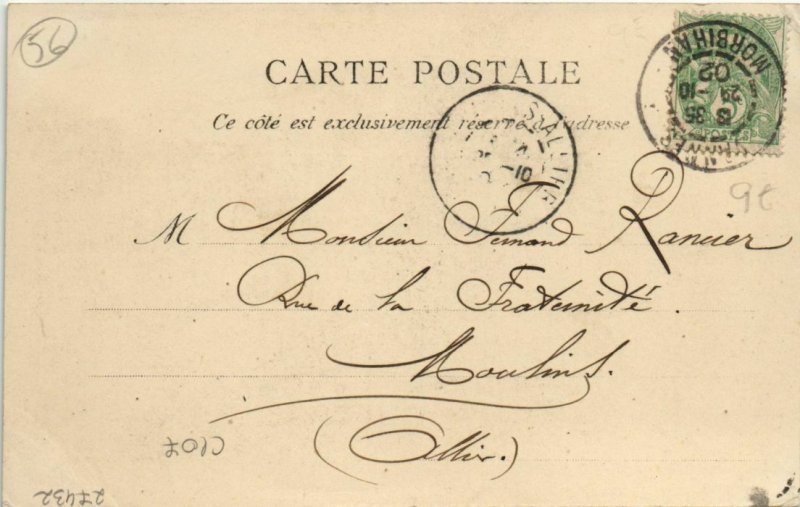 56
CARTE POSTALE
Ce côté est exclusivement réservé à l'adresse
MORBIHAN
29 -10
02
POSTES
-10
9t
M Monsieur Fernand Rancier
Rue de la Fraternité.
Moulins.
(Allier.)
C107
27432